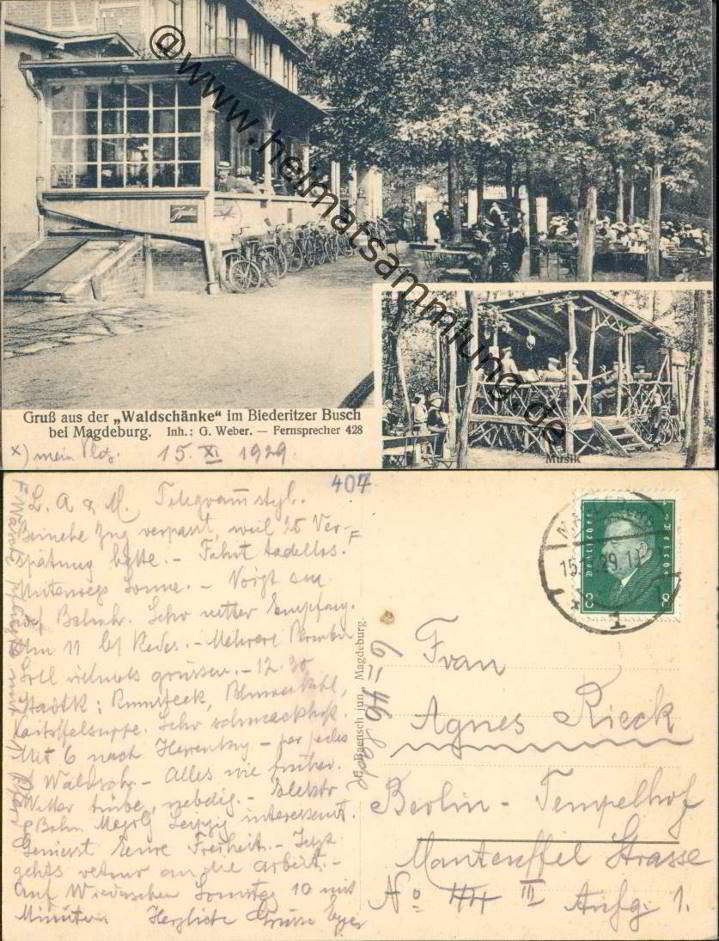 @www.heimatsammlung.de
Gruß aus der „Waldschänke" im Biederitzer Busch
bei Magdeburg. Inh.: G. Weber. — Fernsprecher 428
Musik
x) mein Platz. 15. XI 1929.
407
L. A & M. Telegrammstyl.
Beinahe Zug verpasst, weil 25 Ver-
spätung hatte. - Fahrt tadellos.
Unterwegs Sonne. - Voigt am
Bahnh. Sehr netter Empfang.
11 - Mehrere
Soll vielmals grüssen. - 12.30
Kartoffelsuppe. Sehr schmackhaft.
Mit 6 nach - per pedes
- Alles wie früher.
Wetter trübe, neblig. - Elektr
Bahn Magdb Leipzig interessant.
Geniesst Eure Freiheit. - Jetzt
gehts retour an die Arbeit. -
Auf Wiedersehen Sonntag 10 mit
Minuten Herzliche Grüsse
H. Baensch jun. Magdeburg.
Deutsches Reich
8 8
MAGDEBURG
1
Frau
Agnes Rieck
Berlin - Tempelhof
Manteuffel Strasse
No 44 III Aufg 1.